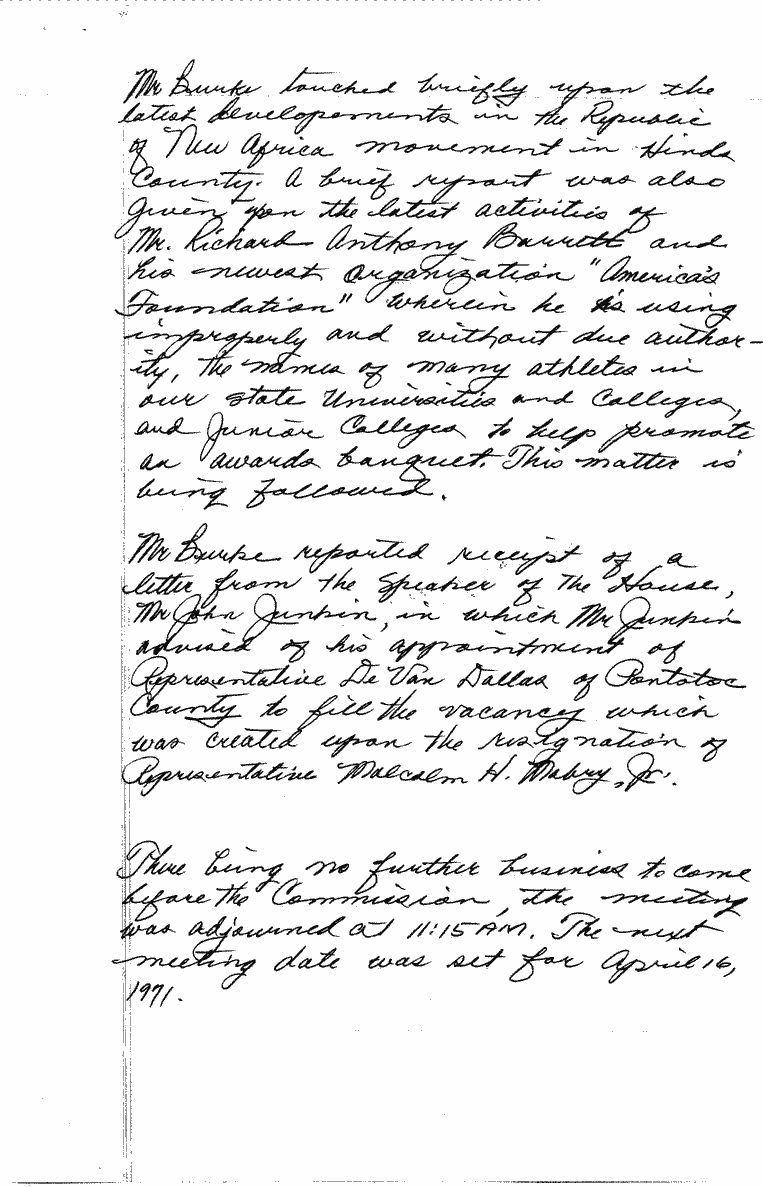 Mr Burke touched briefly upon the
latest developements in the Republic
of New Africa movement in Hinds
County. A brief report was also
given upon the latest activities of
Mr. Richard Anthony Barrett and
his newest organization "America's
Foundation" wherein he is using
improperly and without due author-
ity, the names of many athletes in
our state Universities and Colleges,
and Junior Colleges to help promote
an awards banquet. This matter is
being followed.
Mr Burke reported receipt of a
letter from the Speaker of The House,
Mr John Junkin, in which Mr Junkin
advised of his appointment of
Representative De Van Dallas of Pontotoc
County to fill the vacancy which
was created upon the resignation of
Representative Malcolm H. Mabry, Jr.
There being no further business to come
before the Commission, the meeting
was adjourned at 11:15 AM. The next
meeting date was set for April 16,
1971.